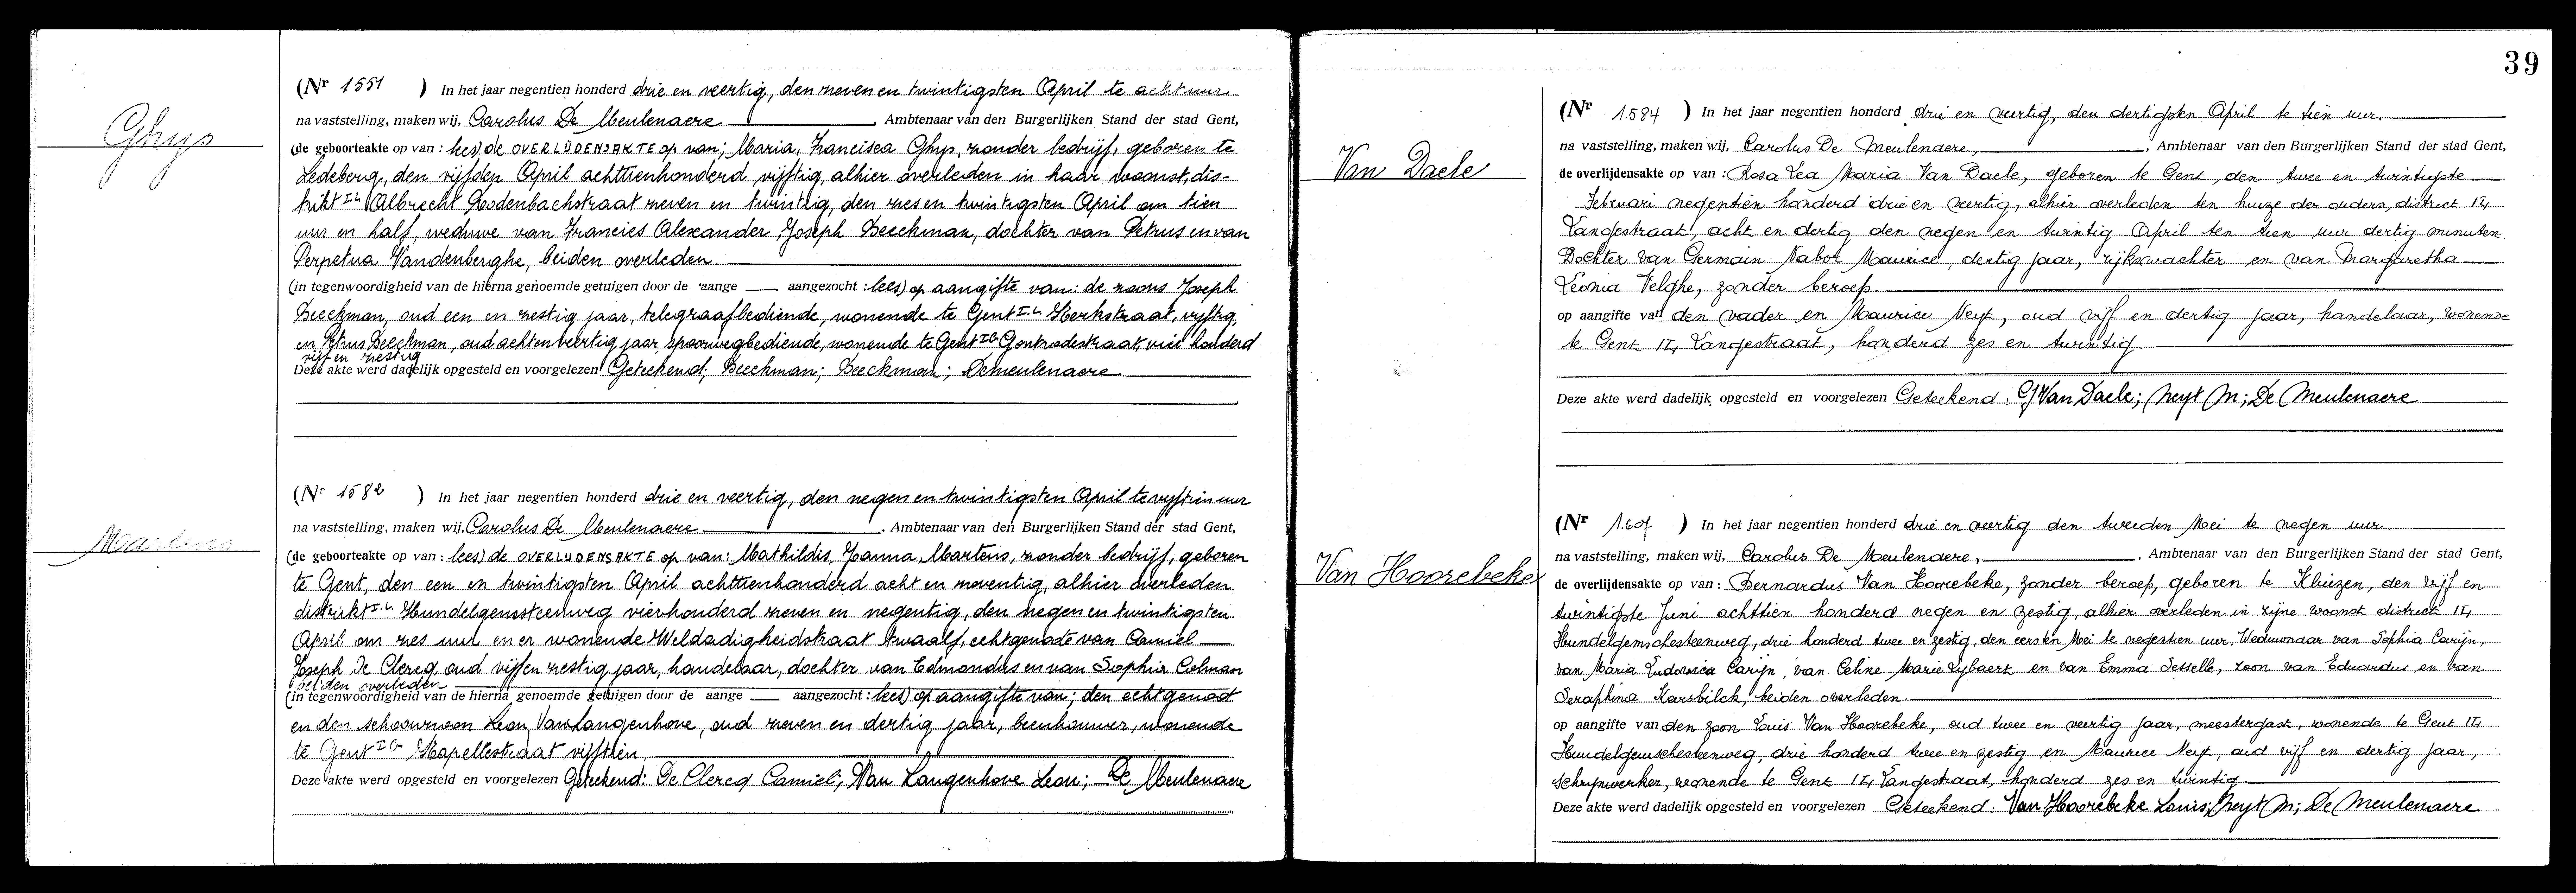 Ghys
(Nr 1551 ) In het jaar negentien honderd drie en veertig, den zeven en twintigsten April te acht uur
na vaststelling, maken wij, Carolus De Meulenaere, Ambtenaar van den Burgerlijken Stand der stad Gent,
(de geboorteakte op van : lees) de OVERLIJDENSAKTE op van; Maria, Francisca Ghys, zonder bedrijf, geboren te
Ledeberg, den vijfden April achttienhonderd vijftig, alhier overleden in haar woonst, dis-
trikt Albrecht Rodenbachstraat zeven en twintig, den zes en twintigsten April om tien
uur en half, weduwe van Francies Alexander, Joseph Beeckman, dochter van Petrus en van
Perpetua Vandenberghe, beiden overleden.
(in tegenwoordigheid van de hierna genoemde getuigen door de aange — aangezocht : lees) op aangifte van: de zoons Joseph
Beeckman, oud een en zestig jaar, telegraafbediende, wonende te Gent Kerkstraat, vijftig,
en Petrus Beeckman, oud acht en veertig jaar, spoorwegbediende, wonende te Gent Gontrodestraat, vier honderd
vijf en zestig
Deze akte werd dadelijk opgesteld en voorgelezen Geteekend; Beeckman; Beeckman; Demeulenaere
Martens
(Nr 1582 ) In het jaar negentien honderd drie en veertig, den negen en twintigsten April te vijftien uur
na vaststelling, maken wij, Carolus De Meulenaere, Ambtenaar van den Burgerlijken Stand der stad Gent,
(de geboorteakte op van : lees) de OVERLIJDENSAKTE op van: Mathildis, Joanna, Martens, zonder bedrijf, geboren
te Gent, den een en twintigsten April achttienhonderd acht en zeventig, alhier overleden
distrikt Hundelgemsteenweg vierhonderd zeven en negentig, den negen en twintigsten
April om zes uur en er wonende Weldadigheidstraat twaalf, echtgenote van Camiel
Joseph De Clercq, oud vijf en zestig jaar, handelaar, dochter van Edmondus en van Sophia Colman
beiden overleden
(in tegenwoordigheid van de hierna genoemde getuigen door de aange — aangezocht : lees) op aangifte van; den echtgenoot
en den schoonzoon Leon, Van Langenhove, oud zeven en dertig jaar, beenhouwer, wonende
te Gent Kapellestraat vijftien.
Deze akte werd opgesteld en voorgelezen Geteekend: De Clercq Camiel; Van Langenhove Leon; De Meulenaere
39
Van Daele
(Nr 1584 ) In het jaar negentien honderd drie en veertig, den dertigsten April te tien uur.
na vaststelling, maken wij, Carolus De Meulenaere, Ambtenaar van den Burgerlijken Stand der stad Gent,
de overlijdensakte op van : Rosa Lea Maria Van Daele, geboren te Gent, den twee en twintigste
Februari negentien honderd drie en veertig, alhier overleden ten huize der ouders, district II,
Langestraat, acht en dertig den negen en twintig April ten tien uur dertig minuten.
Dochter van Germain Nabor Maurice, dertig jaar, rijkswachter en van Margaretha
Leonia Velghe, zonder beroep.
op aangifte van den vader en Maurice Neyt, oud vijf en dertig jaar, handelaar, wonende
te Gent II, Langestraat, honderd zes en twintig.
Deze akte werd dadelijk opgesteld en voorgelezen Geteekend: G Van Daele; Neyt M; De Meulenaere
Van Hoorebeke
(Nr 1.607 ) In het jaar negentien honderd drie en veertig den tweeden Mei te negen uur.
na vaststelling, maken wij, Carolus De Meulenaere, Ambtenaar van den Burgerlijken Stand der stad Gent,
de overlijdensakte op van : Bernardus Van Hoorebeke, zonder beroep, geboren te Kluizen, den vijf en
twintigste Juni achttien honderd negen en zestig, alhier overleden in zijne woonst district II,
Hundelgemschesteenweg, drie honderd twee en zestig, den eersten Mei te negentien uur. Weduwnaar van Sophia Carijn,
van Maria Ludovica Carijn, van Celine Marie Lybaert en van Emma Sesselle, zoon van Eduardus en van
Seraphina Harsbilck, beiden overleden.
op aangifte van den zoon Louis Van Hoorebeke, oud twee en veertig jaar, meestergast, wonende te Gent II,
Hundelgemschesteenweg, drie honderd twee en zestig en Maurice Neyt, oud vijf en dertig jaar,
schrijnwerker, wonende te Gent II, Langestraat, honderd zes en twintig.
Deze akte werd dadelijk opgesteld en voorgelezen Geteekend: Van Hoorebeke Louis; Neyt M; De Meulenaere